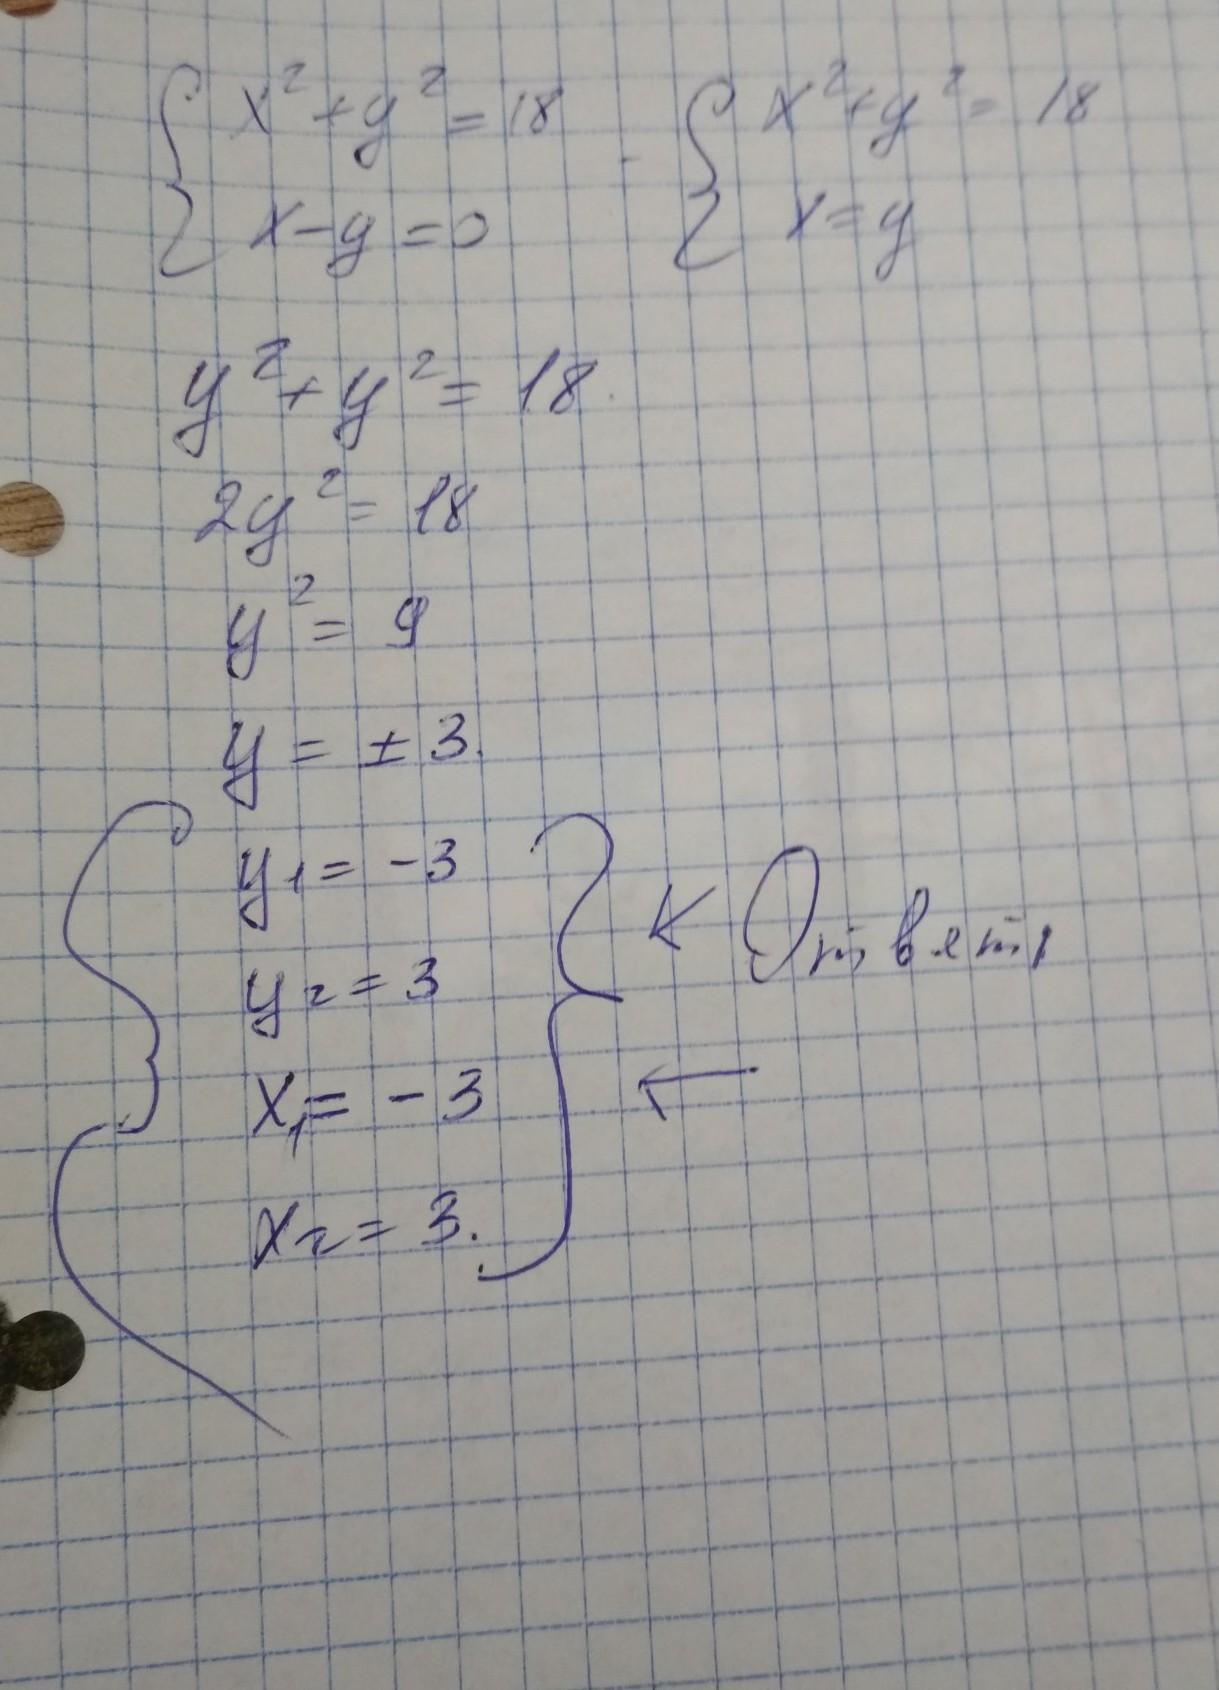 x² + y² = 18 - x² + y² = 18
x - y = 0 x = y
y² + y² = 18.
2y² = 18
y² = 9
y = ± 3.
y₁ = -3
y₂ = 3
x₁ = -3
x₂ = 3.
← Ответы
←